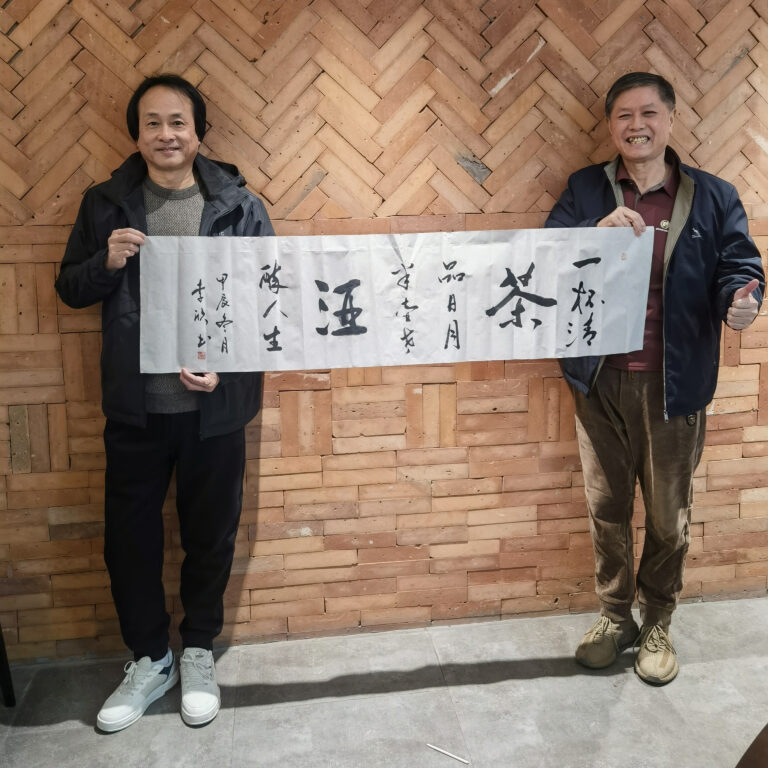 一杯清
茶
品日月
半壶老
酒
醉人生
甲辰冬月
李欣书